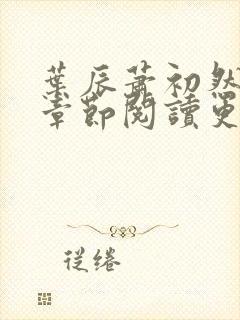 葉辰蕭初然
章節閱讀更
從綣